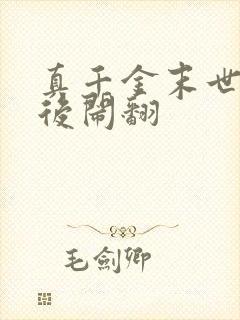 真千金末世
後鬧翻
毛劍卿